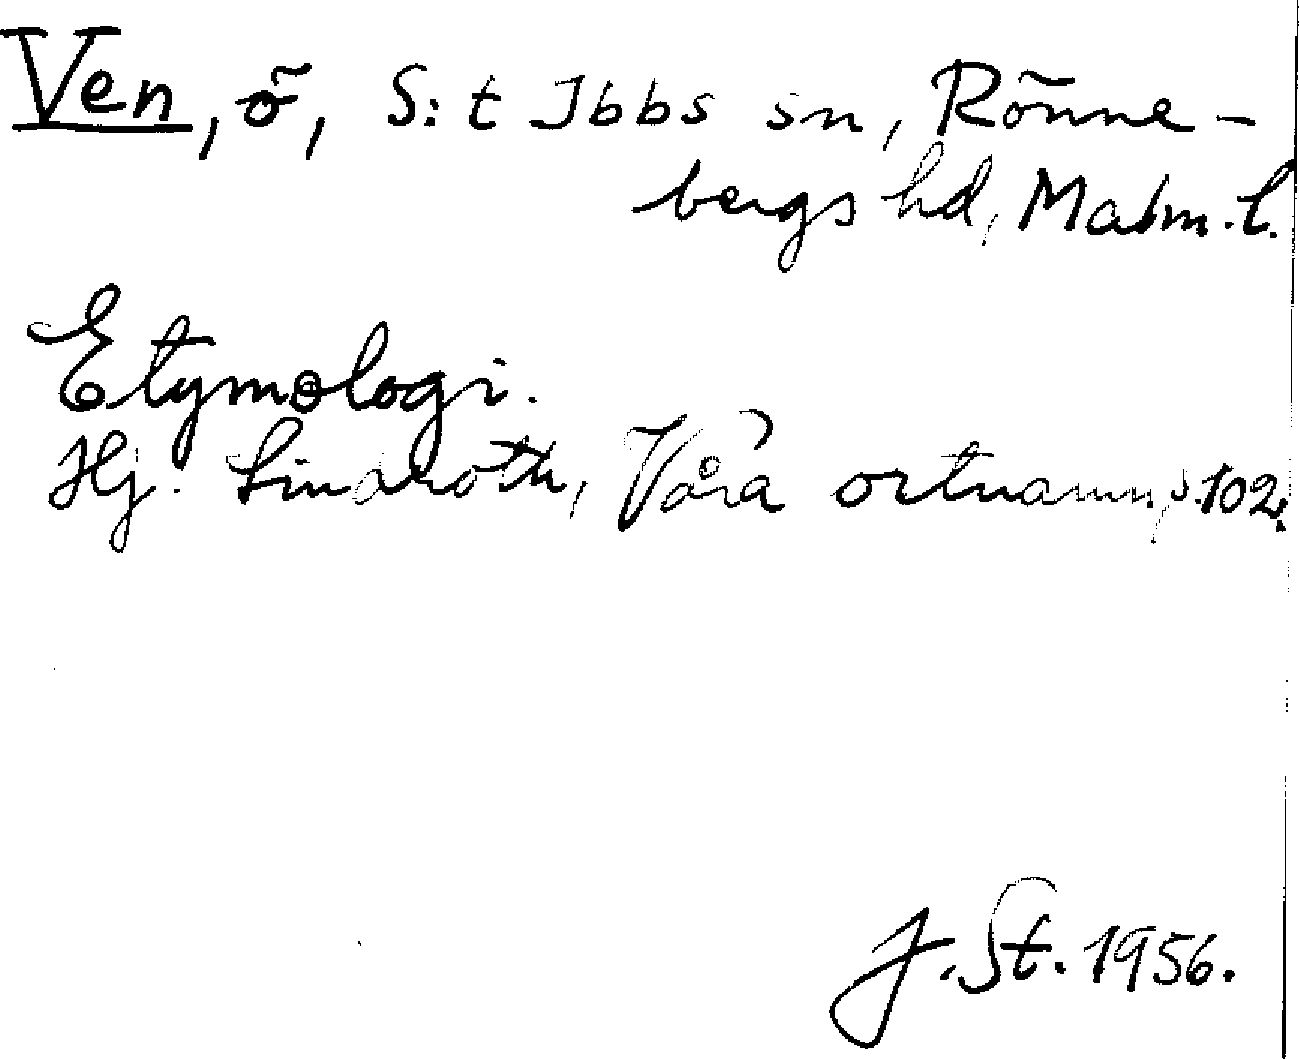 Ven, ö, S:t Ibbs sn, Rönne-
bergs hd, Malm. l.
Etymologi.
Hj. Lindroth, Våra ortnamn, s. 102.
J. St. 1956.